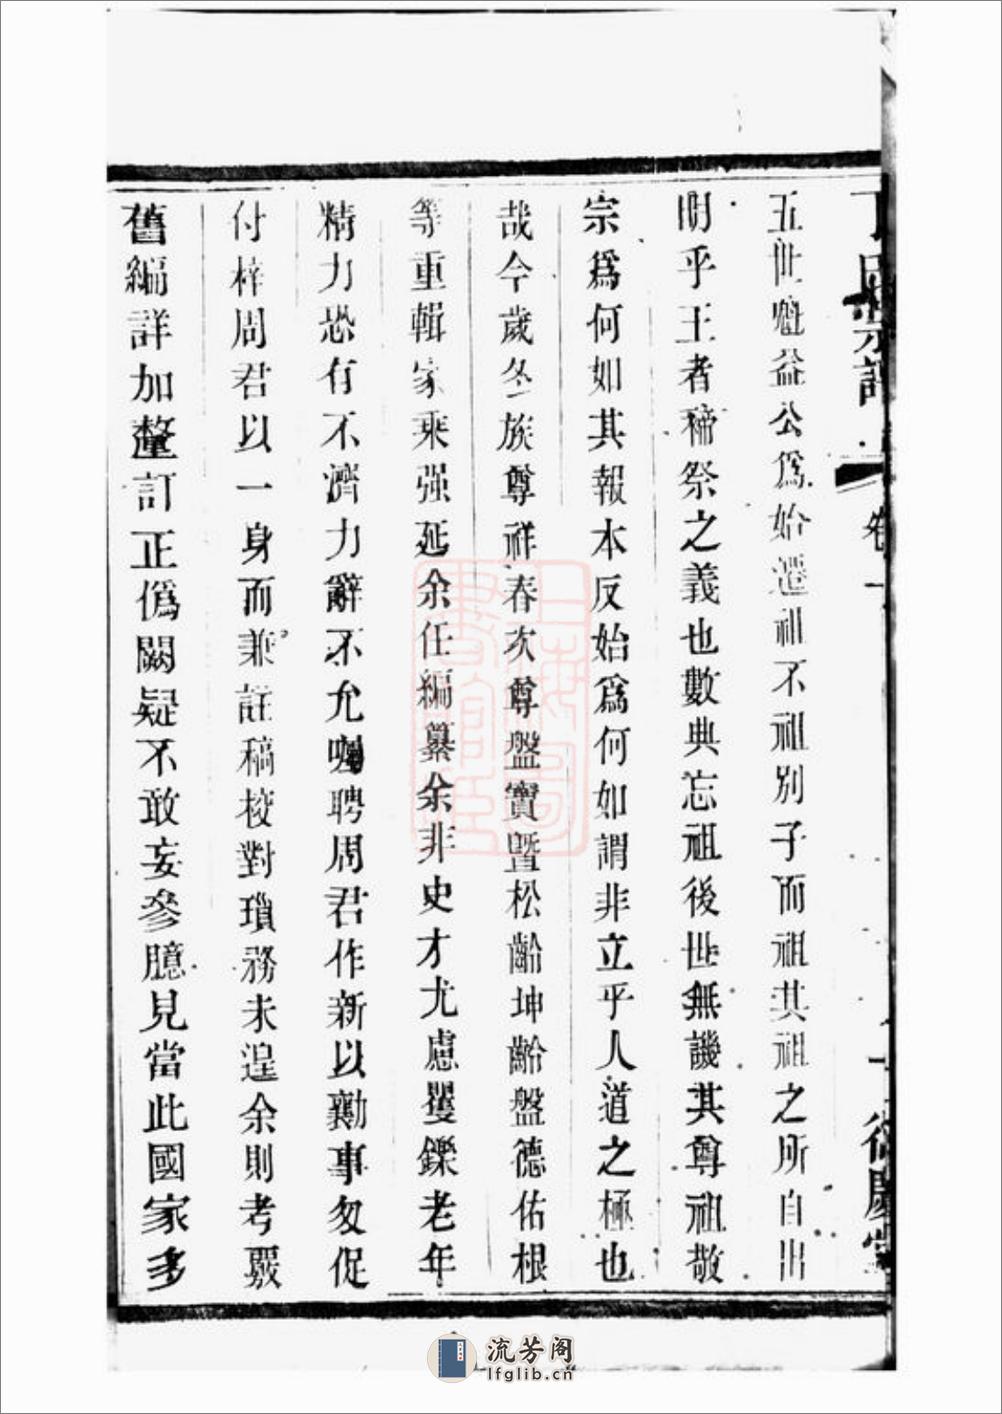 丁氏宗譜 卷一 一
五世魁益公爲始遷祖不祖別子而祖其祖之所自出
明乎王者禘祭之義也數典忘祖後世無譏其尊祖敬
宗爲何如其報本反始爲何如謂非立乎人道之極也
哉今歲冬族尊祥春次尊盤寳暨松齡坤齡盤德佑根
等重輯家乘强延余任編纂余非史才尤慮矍鑠老年
精力恐有不濟力辭不允囑聘周君作新以勷事匆促
付梓周君以一身而兼註稿校對瑣務未遑余則考覈
舊編詳加釐訂正僞闕疑不敢妄參臆見當此國家多
上海圖書館藏
流芳阁
lfglib.cn